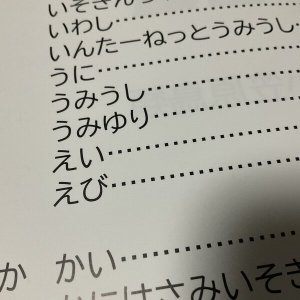 いそぎん
いわし……
いんたーねっとうみうし…
うに……
うみうし……
うみゆり……
えい……
えび……
か かい……
かにはさみいそぎ